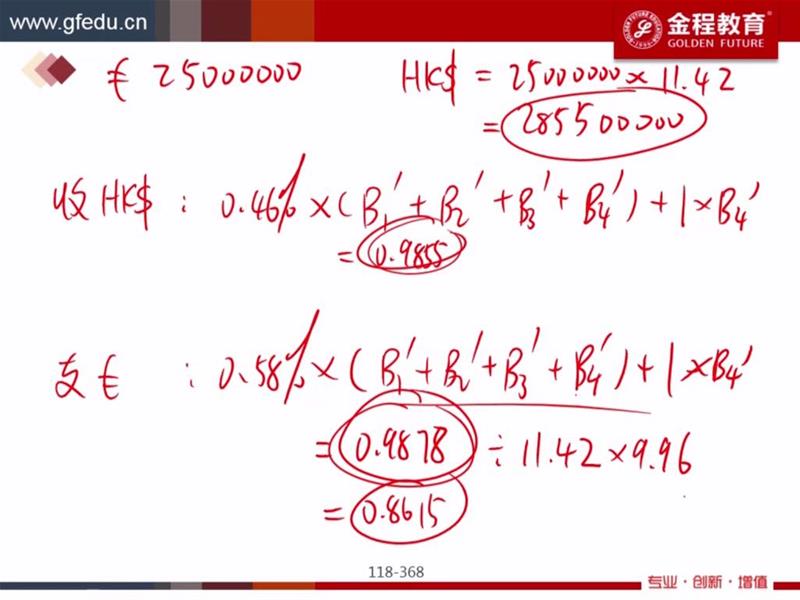 www.gfedu.cn
金程教育
GOLDEN FUTURE
€ 25000000 HK$ = 25000000×11.42
= 285500000
收HK$ : 0.46% ×(B₁′+B₂′+B₃′+B₄′)+1×B₄′
= 0.9855
支€ : 0.58% ×(B₁′+B₂′+B₃′+B₄′)+1×B₄′
= 0.9878 ÷11.42×9.96
= 0.8615
118-368
专业·创新·增值